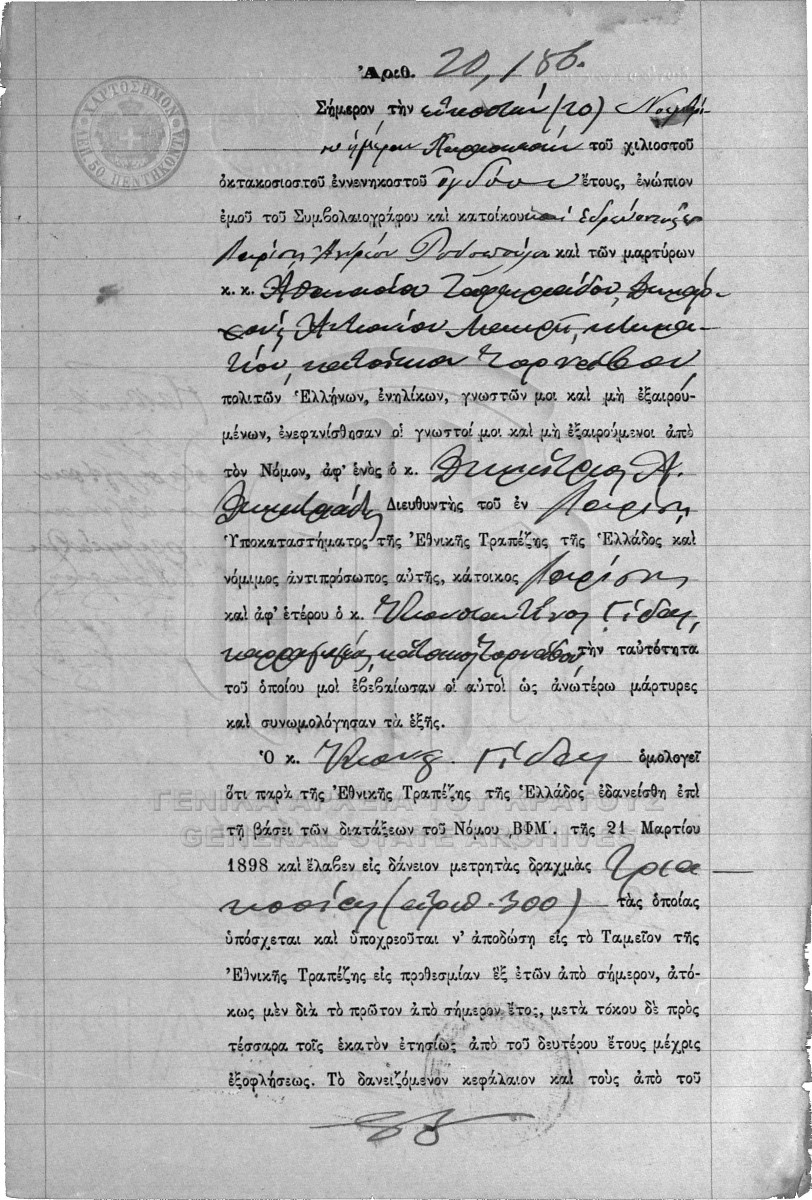 ΧΑΡΤΟΣΗΜΟΝ
ΛΕΠ. 50 ΠΕΝΤΗΚΟΝΤΑ
Ἀριθ. 20,186.
Σήμερον τὴν εἰκοστὴν (20) Νοεμβρί-
ου ἡμέραν Παρασκευὴν τοῦ χιλιοστοῦ
ὀκτακοσιοστοῦ ἐννενηκοστοῦ ὀγδόου ἔτους, ἐνώπιον
ἐμοῦ τοῦ Συμβολαιογράφου καὶ κατοίκου καὶ ἑδρεύοντος ἐν
Λαρίσῃ Ἀνδρέου Ροδοπούλου καὶ τῶν μαρτύρων
κ. κ. Ἀθανασίου
Ἀντωνίου Μακρῆ, κτημα-
τίου, κατοίκων Τυρνάβου
πολιτῶν Ἑλλήνων, ἐνηλίκων, γνωστῶν μοι καὶ μὴ ἐξαιρου-
μένων, ἐνεφανίσθησαν οἱ γνωστοί μοι καὶ μὴ ἐξαιρούμενοι ἀπὸ
τὸν Νόμον, ἀφ' ἑνὸς ὁ κ. Δημήτριος Α.
Δημητριάδης Διευθυντὴς τοῦ ἐν Λαρίσῃ
Ὑποκαταστήματος τῆς Ἐθνικῆς Τραπέζης τῆς Ἑλλάδος καὶ
νόμιμος ἀντιπρόσωπος αὐτῆς, κάτοικος Λαρίσης
καὶ ἀφ' ἑτέρου ὁ κ. Κωνσταντῖνος Γίδας,
κάτοικος Τυρνάβου, τὴν ταὐτότητα
τοῦ ὁποίου μοὶ ἐβεβαίωσαν οἱ αὐτοὶ ὡς ἀνωτέρω μάρτυρες
καὶ συνωμολόγησαν τὰ ἑξῆς.
Ὁ κ. Κωνστ. Γίδας ὁμολογεῖ
ὅτι παρὰ τῆς Ἐθνικῆς Τραπέζης τῆς Ἑλλάδος ἐδανείσθη ἐπὶ
τῇ βάσει τῶν διατάξεων τοῦ Νόμου ͵ΒΦΜ΄. τῆς 21 Μαρτίου
1898 καὶ ἔλαβεν εἰς δάνειον μετρητὰς δραχμὰς τρια-
κοσίας (ἀριθ. 300) τὰς ὁποίας
ὑπόσχεται καὶ ὑποχρεοῦται ν' ἀποδώσῃ εἰς τὸ Ταμεῖον τῆς
Ἐθνικῆς Τραπέζης εἰς προθεσμίαν ἓξ ἐτῶν ἀπὸ σήμερον, ἀτό-
κως μὲν διὰ τὸ πρῶτον ἀπὸ σήμερον ἔτος, μετὰ τόκου δὲ πρὸς
τέσσαρα τοῖς ἑκατὸν ἐτησίως ἀπὸ τοῦ δευτέρου ἔτους μέχρις
ἐξοφλήσεως. Τὸ δανειζόμενον κεφάλαιον καὶ τοὺς ἀπὸ τοῦ
ΓΕΝΙΚΑ ΑΡΧΕΙΑ ΤΟΥ ΚΡΑΤΟΥΣ
GENERAL STATE ARCHIVES